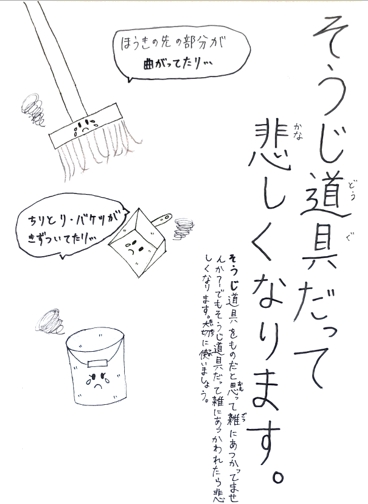 そうじ道具だって
どう ぐ
悲しくなります。
かな
ほうきの先の部分が
曲がってたり…
ちりとり・バケツが
きずついてたり…
そうじ道具をものだと思って雑にあつかってませ
んか?でもそうじ道具だって雑にあつかわれたら悲
しくなります。大切に使いましょう。